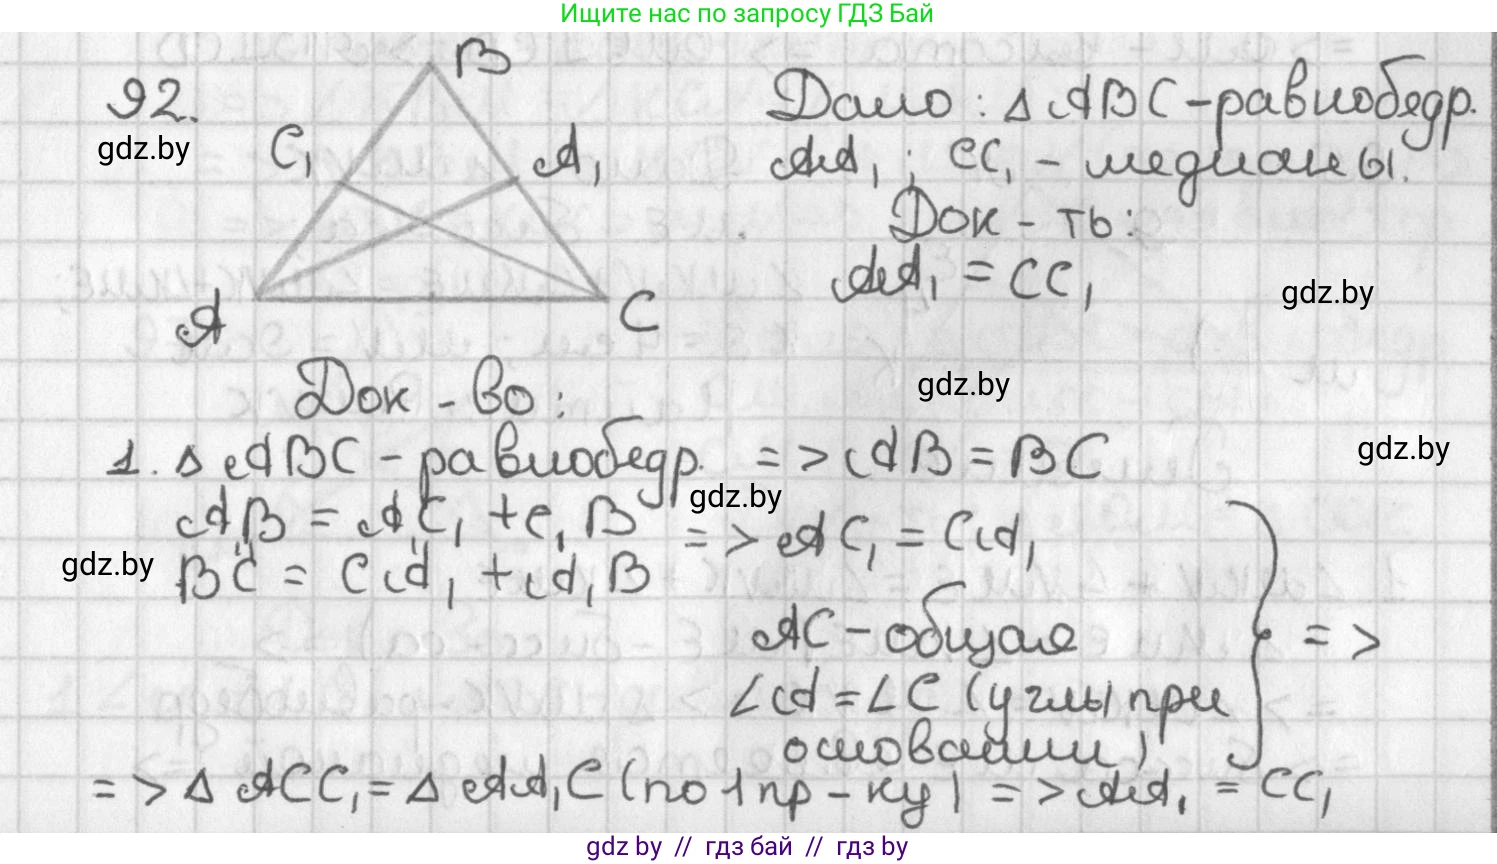 Ищите нас по запросу ГДЗ Бай
92.
gdz.by
B
C₁
A₁
A
C
Дано: Δ ABC - равнобедр.
AA₁; CC₁ - медианы.
Док - ть:
AA₁ = CC₁
gdz.by
Док - во:
gdz.by
1. Δ ABC - равнобедр. => AB = BC
gdz.by
gdz.by
AB = AC₁ + C₁B
BC = CA₁ + A₁B
=> AC₁ = CA₁
gdz.by
AC - общая
∠A = ∠C (углы при
основании)
} =>
=> Δ ACC₁ = Δ AA₁C (по 1 пр - ку) => AA₁ = CC₁
gdz by // гдз бай // гдз by